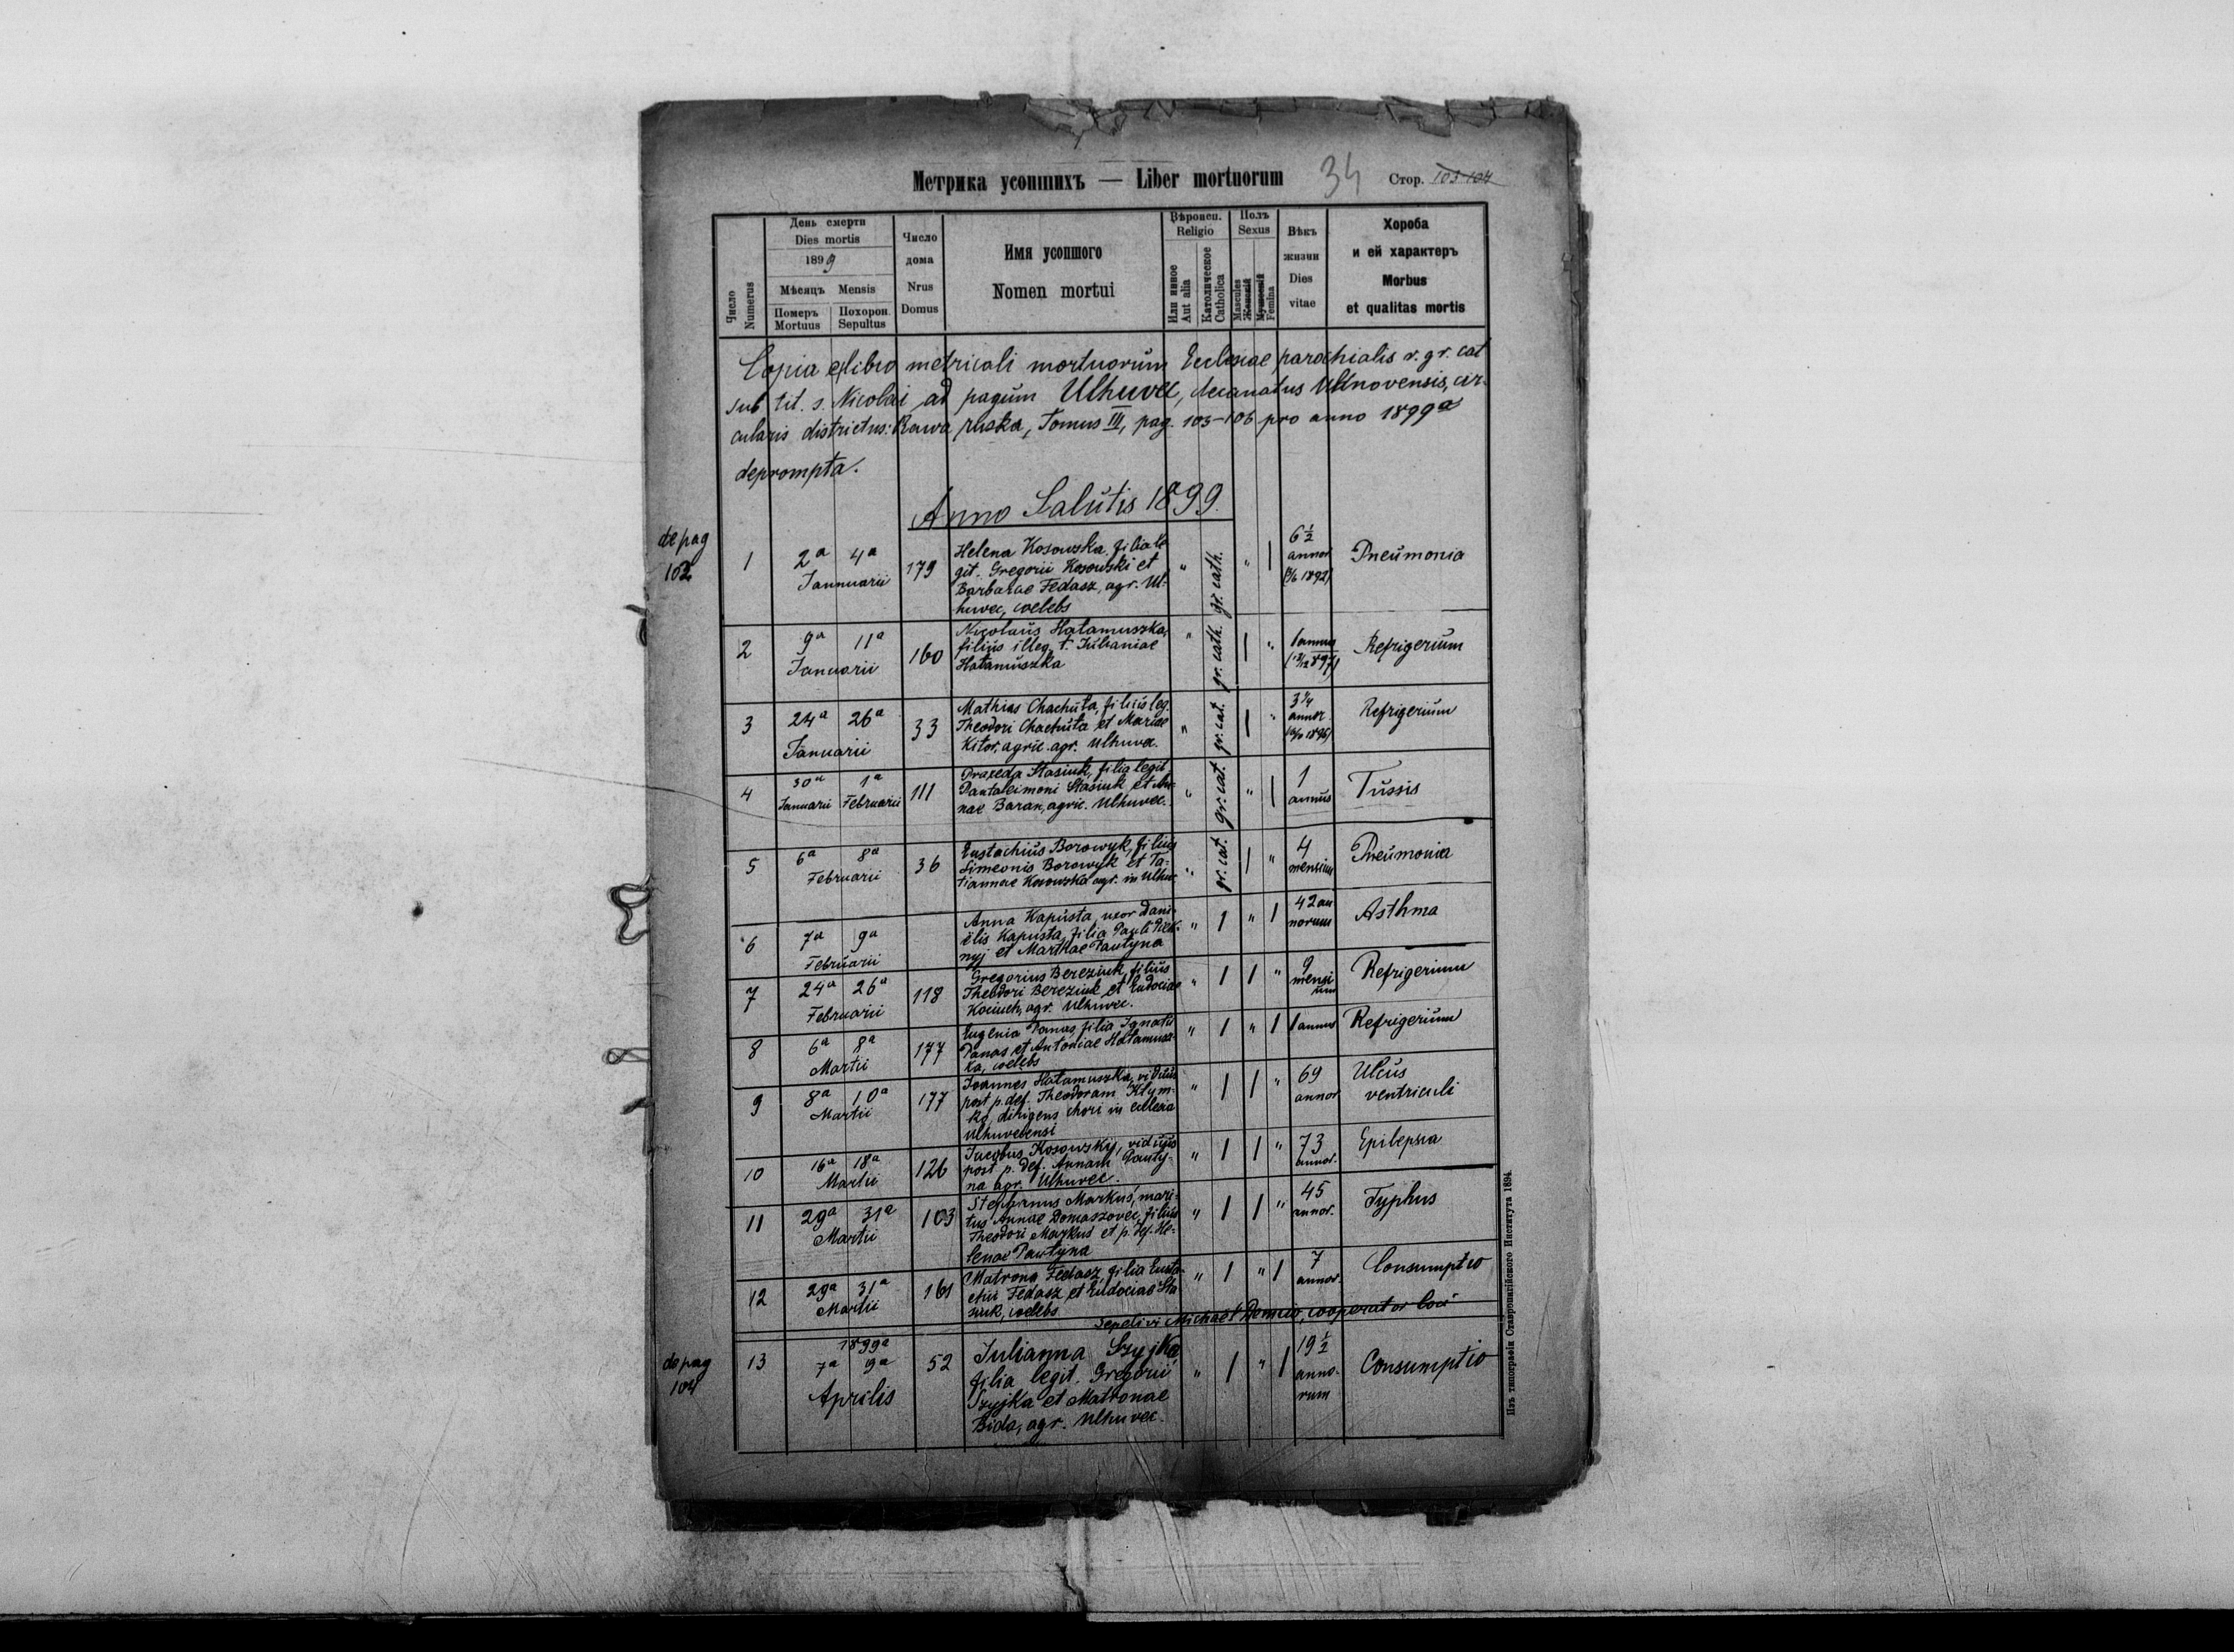 Метрика усопшихъ — Liber mortuorum
34
Стор. 103-104
Число
Numerus
День смерти
Dies mortis
1899
Мѣсяцъ Mensis
Померъ
Mortuus
Похорон.
Sepultus
Число
дома
Nrus
Domus
Имя усопшого
Nomen mortui
Вѣроисп.
Religio
Или инное
Aut alia
Католическое
Catholica
Полъ
Sexus
Mascules
Женскій
Мужескій
Femina
Вѣкъ
жизни
Dies
vitae
Хороба
и ей характеръ
Morbus
et qualitas mortis
Copia ex libro metricali mortuorum Ecclesiae parochialis r. gr. cat
sub tit. s. Nicolai ad pagum Ulhuvec, decanatus Uhnovensis, cir-
cularis districtus: Rawa ruska, Tomus III, pag. 103-106 pro anno 1899a
deprompta.
Anno Salutis 1899.
de pag
103
1
2a 4a
Jannuarii
179
Helena Kosowska, filia le
git. Gregorii Kosowski et
Barbarae Fedasz, agr. Ul-
huvec, coelebs
"
gr. cath.
" |
6 1/2
annor
Pneumonia
2
9a 11a
Januarii
160
Nicolaus Hatamuszka,
filius illeg. t. Julianiae
Hatamuszka
"
gr. cath.
| "
1 annus
Refrigerium
3
24a 26a
Januarii
33
Mathias Chachuta, filius leg.
Theodori Chachuta et Mariae
Kitor, agric. agr. Ulhuvec.
"
gr. cat.
| "
3 1/4
annor.
Refrigerium
4
30a 1a
Januarii Februarii
111
Praxeda Stasiuk, filia legit
Pantaleimoni Stasiuk et An-
nae Baran, agric. Ulhuvec.
"
gr. cat.
" |
1
annus
Tussis
5
6a 8a
Februarii
36
Eustachius Borowyk, filius
Simeonis Borowyk et Ta-
tiannae Kosowska agr. in Ulhuv
"
gr. cat.
| "
4
mensium
Pneumonia
6
7a 9a
Februarii
Anna Kapusta, uxor Dani-
elis Kapusta, filia Pauli
nyj et Marthae Pautyna
" | " |
42 an
norum
Asthma
7
24a 26a
Februarii
118
Gregorius Bereziuk, filius
Theodori Bereziuk et Eudociae
Kociuch, agr. Ulhuvec.
" | | "
9
mensi
um
Refrigerium
8
6a 8a
Martii
177
Eugenia Panas, filia Ignatii
Panas et Antoniae Hatamusz-
ka, coelebs
" | " |
1 annus
Refrigerium
9
8a 10a
Martii
177
Joannes Hatamuszka, viduus
post p. def. Theodoram Klym-
ko, dirigens chori in
Ulhuvecensi
" | | "
69
annor
Ulcus
ventriculi
10
16a 18a
Martii
126
Jacobus Kosowskyj, viduus
post p. def. Annam Pauty-
na agr. Ulhuvec.
" | | "
73
annor.
Epilepsia
11
29a 31a
Martii
103
Stephanus Markus, mari-
tus Annae Domaszovec, filius
Theodori Markus et p. def. He-
lenae Pautyna
" | | "
45
annor.
Typhus
12
29a 31a
Martii
161
Matrona Fedasz, filia Eusta-
chii Fedasz et Eudociae Sta
siuk, coelebs
" | " |
7
annor.
Consumptio
Sepelivi Michael cooperator loci
de pag
104
13
1899a
7a 9a
Aprilis
52
Julianna Szyjka
filia legit. Gregorii
Szyjka et Matronae
Bida, agr. Ulhuvec.
" | " |
19 1/2
anno-
rum
Consumptio
Изъ типографіи Ставропигійского Института 1894.